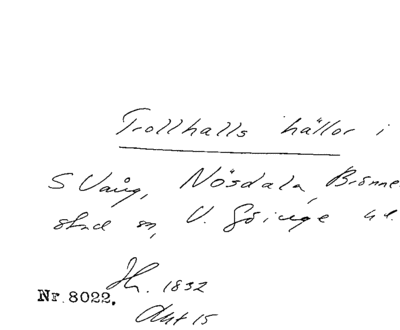 Trollhalls hällor i
S Vång, Nösdala, Brönne-
stad sn, V. Göinge hd.
Jh. 1832
Nr. 8022.
Akt 15